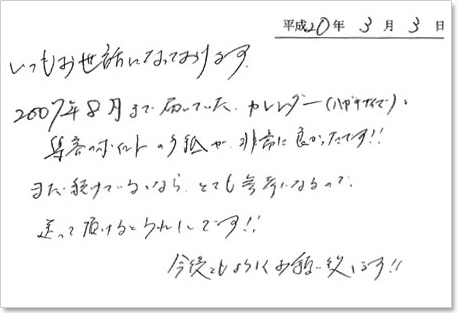 平成20年 3月 3日
いつもお世話になっております。
2007年8月まで届いていた、カレンダー(ハガキサイズ)と
集客のポイントの手紙が、非常に良かったです!!
まだ続けているなら、とても参考になるので、
送って頂けるとうれしいです!!
今後ともよろしくお願い致します!!